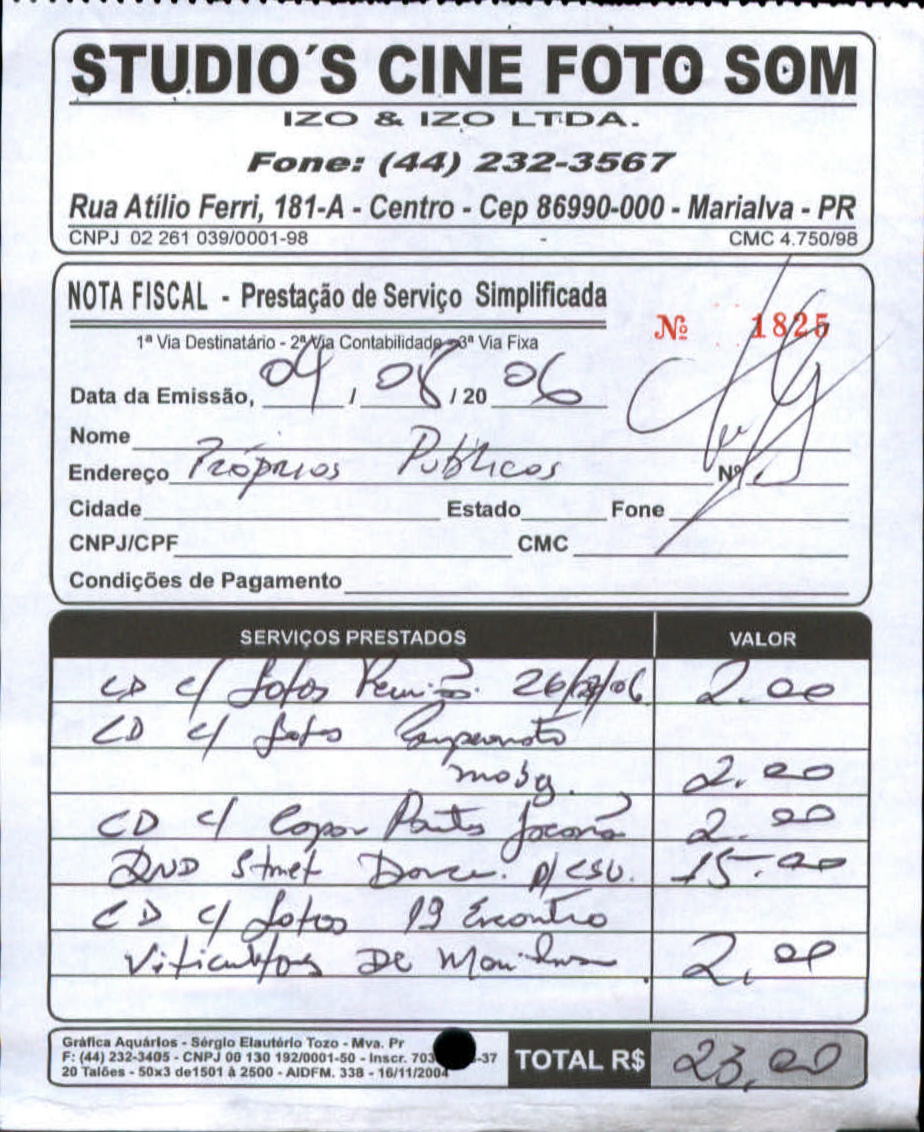 STUDIO´S CINE FOTO SOM
IZO & IZO LTDA.
Fone: (44) 232-3567
Rua Atílio Ferri, 181-A - Centro - Cep 86990-000 - Marialva - PR
CNPJ 02 261 039/0001-98 CMC 4.750/98
NOTA FISCAL - Prestação de Serviço Simplificada
Nº 1825
1ª Via Destinatário - 2ª Via Contabilidade - 3ª Via Fixa
Data da Emissão, 04 / 08 / 20 06
Nome
Endereço Próprios Publicos Nº
Cidade Estado Fone
CNPJ/CPF CMC
Condições de Pagamento
SERVIÇOS PRESTADOS VALOR
CD c/ fotos Reunião 2.00
CD c/ fotos Campeonato
2.00
CD c/ 2.00
Street p/ CSU. 15.00
CD c/ fotos 1º Encontro
Viticultores De 2.00
Gráfica Aquários - Sérgio Elautério Tozo - Mva. Pr
F: (44) 232-3405 - CNPJ 00 130 192/0001-50 - Inscr. 703 -37
20 Talões - 50x3 de1501 à 2500 - AIDFM. 338 - 16/11/2004
TOTAL R$ 23,00